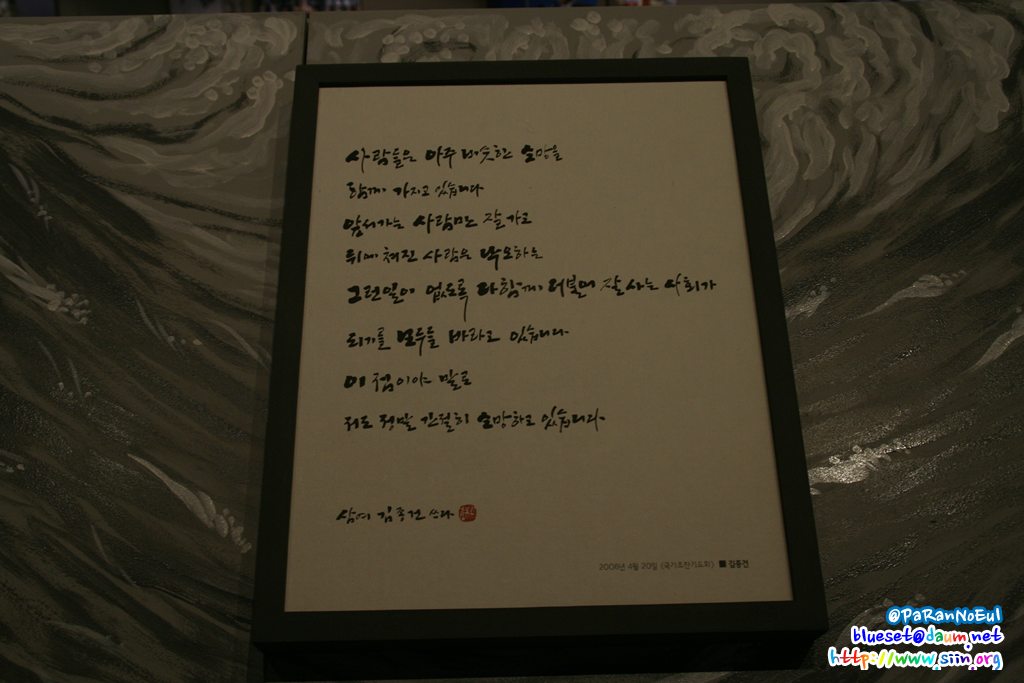 사람들은 아주 비슷한 소망을
함께 가지고 있습니다
앞서가는 사람만 잘 가고
뒤에 쳐진 사람은 낙오하는
그런일이 없도록 다함께 더불어 잘 사는 사회가
되기를 모두들 바라고 있습니다
이 점이야 말로
저도 정말 간절히 소망하고 있습니다
삼여 김종건 쓰다
4월 20일 (국가조찬기도회) ■ 김종건
@PaRanNoEul
blueset@daum.net
http://www.siin.org